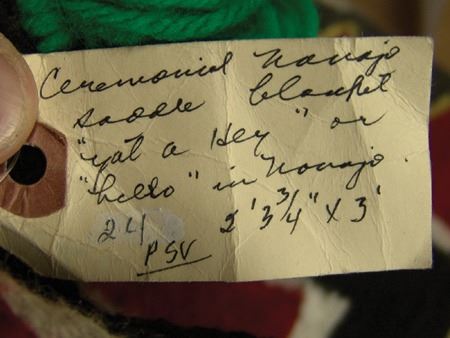 Ceremonial Navajo
saddle blanket
"yat a Hey" or
"hello" in Navajo.
24
2' 3 3/4" x 3'
PSV